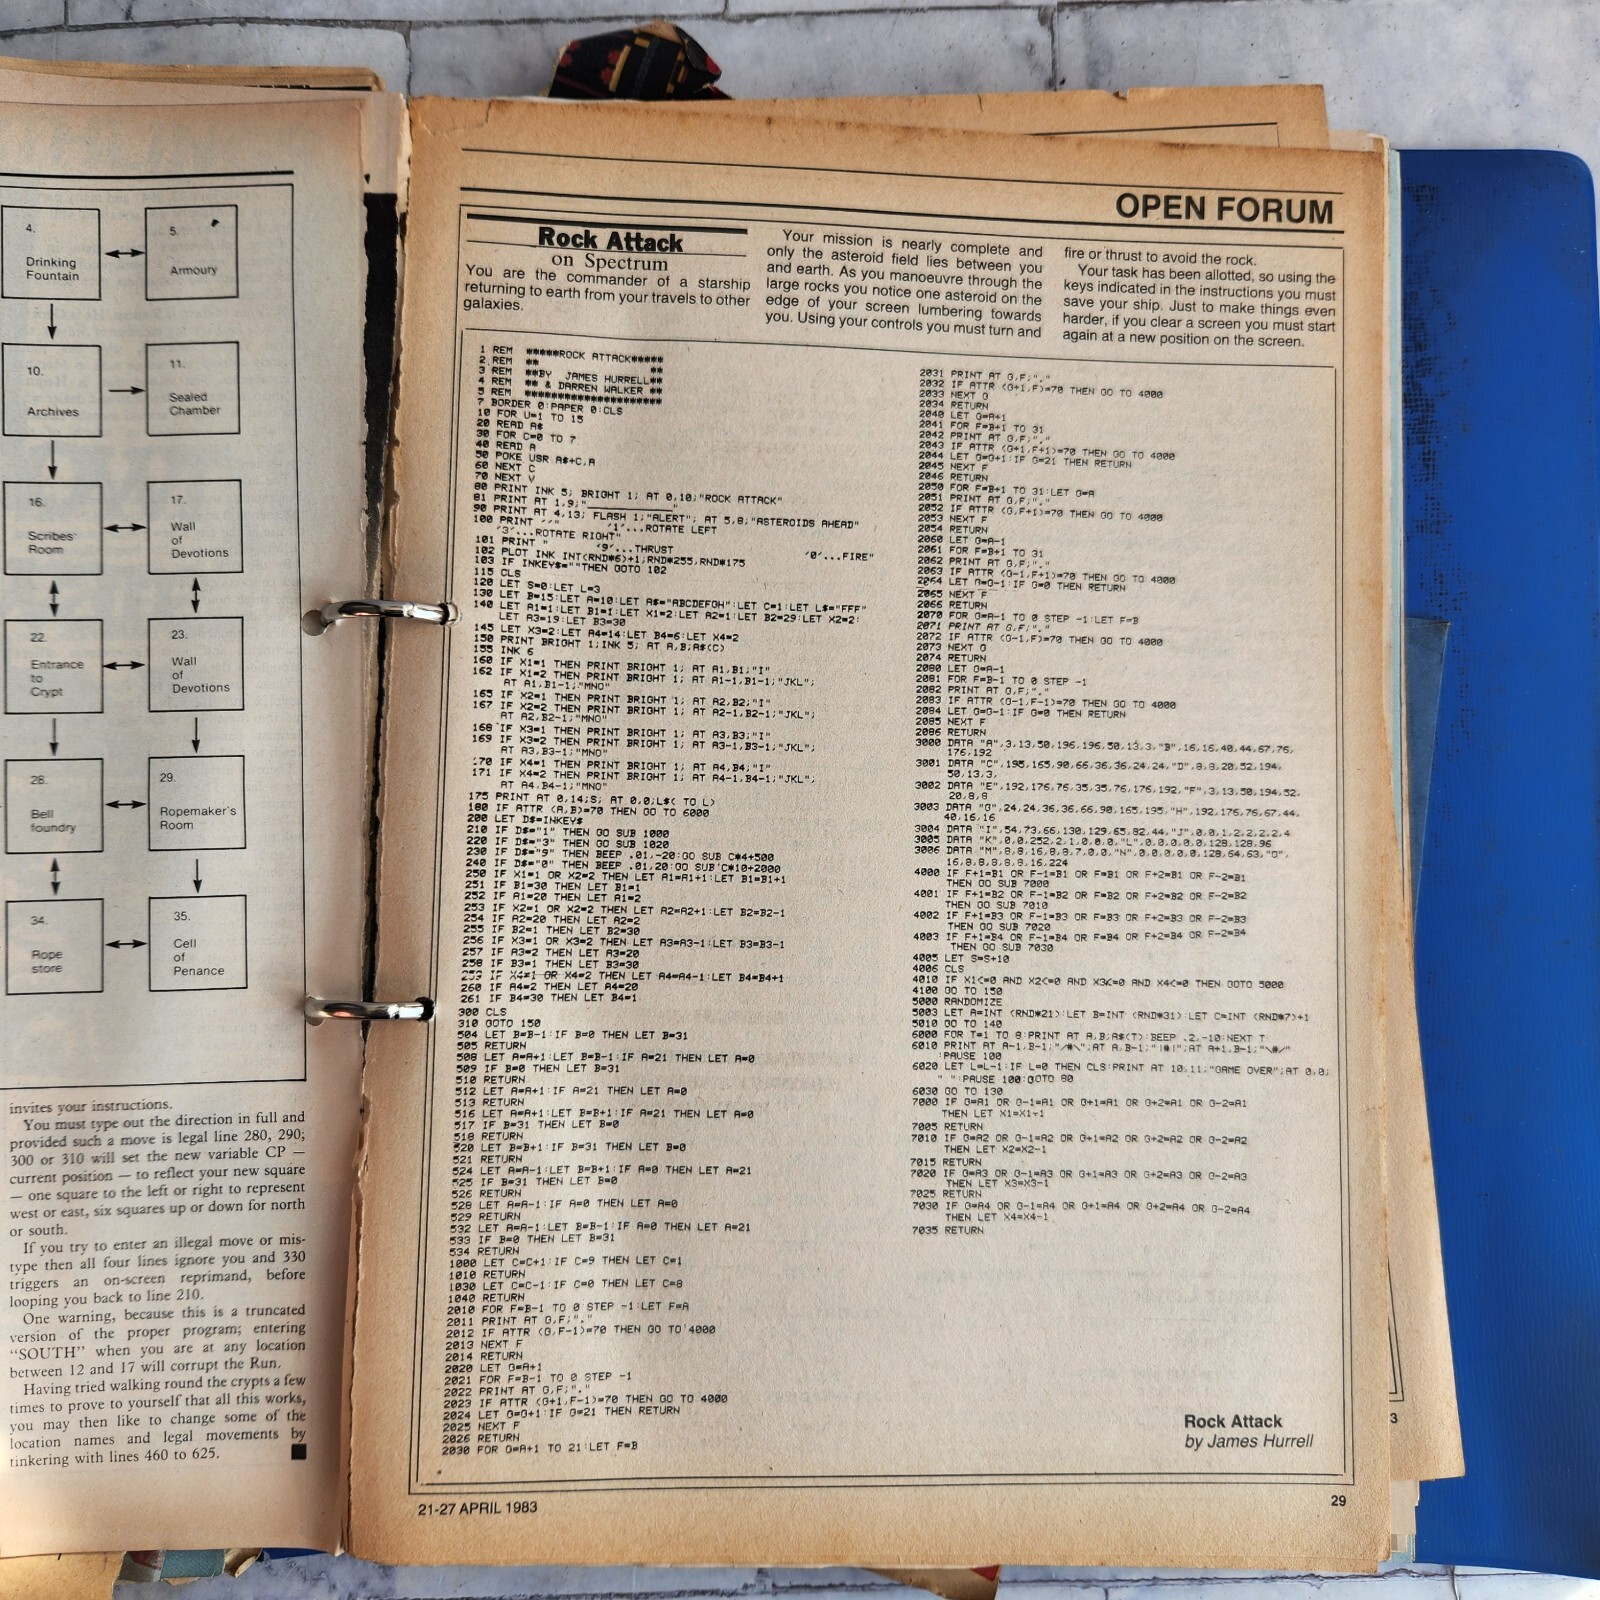 4.
Drinking
Fountain
5.
Armoury
10.
Archives
11.
Sealed
Chamber
16.
Scribes'
Room
17.
Wall
of
Devotions
22.
Entrance
to
Crypt
23.
Wall
of
Devotions
28.
Bell
foundry
29.
Ropemaker's
Room
34.
Rope
store
35.
Cell
of
Penance
invites your instructions.
You must type out the direction in full and
provided such a move is legal line 280, 290;
300 or 310 will set the new variable CP —
current position — to reflect your new square
— one square to the left or right to represent
west or east, six squares up or down for north
or south.
If you try to enter an illegal move or mis-
type then all four lines ignore you and 330
triggers an on-screen reprimand, before
looping you back to line 210.
One warning, because this is a truncated
version of the proper program; entering
"SOUTH" when you are at any location
between 12 and 17 will corrupt the Run.
Having tried walking round the crypts a few
times to prove to yourself that all this works,
you may then like to change some of the
location names and legal movements by
tinkering with lines 460 to 625.
OPEN FORUM
Rock Attack
on Spectrum
You are the commander of a starship
returning to earth from your travels to other
galaxies.
Your mission is nearly complete and
only the asteroid field lies between you
and earth. As you manoeuvre through the
large rocks you notice one asteroid on the
edge of your screen lumbering towards
you. Using your controls you must turn and
fire or thrust to avoid the rock.
Your task has been allotted, so using the
keys indicated in the instructions you must
save your ship. Just to make things even
harder, if you clear a screen you must start
again at a new position on the screen.
1 REM *****ROCK ATTACK*****
2 REM ** **
3 REM **BY JAMES HURRELL**
4 REM ** & DARREN WALKER **
5 REM *********************
7 BORDER 0:PAPER 0:CLS
10 FOR U=1 TO 15
20 READ A$
30 FOR C=0 TO 7
40 READ A
50 POKE USR A$+C,A
60 NEXT C
70 NEXT V
80 PRINT INK 5; BRIGHT 1; AT 0,10;"ROCK ATTACK"
81 PRINT AT 1,9;"____________"
90 PRINT AT 4,13; FLASH 1;"ALERT"; AT 5,8;"ASTEROIDS AHEAD"
100 PRINT ''" '1'...ROTATE LEFT
'3'...ROTATE RIGHT"
101 PRINT " '9'...THRUST '0'...FIRE"
102 PLOT INK INT(RND*6)+1;RND*255,RND*175
103 IF INKEY$=""THEN GOTO 102
115 CLS
120 LET S=0:LET L=3
130 LET B=15:LET A=10:LET A$="ABCDEFGH":LET C=1:LET L$="FFF"
140 LET A1=1:LET B1=1:LET X1=2:LET A2=1:LET B2=29:LET X2=2:
LET A3=19:LET B3=30
145 LET X3=2:LET A4=14:LET B4=6:LET X4=2
150 PRINT BRIGHT 1;INK 5; AT A,B;A$(C)
155 INK 6
160 IF X1=1 THEN PRINT BRIGHT 1; AT A1,B1;"I"
162 IF X1=2 THEN PRINT BRIGHT 1; AT A1-1,B1-1;"JKL";
AT A1,B1-1;"MNO"
165 IF X2=1 THEN PRINT BRIGHT 1; AT A2,B2;"I"
167 IF X2=2 THEN PRINT BRIGHT 1; AT A2-1,B2-1;"JKL";
AT A2,B2-1;"MNO"
168 IF X3=1 THEN PRINT BRIGHT 1; AT A3,B3;"I"
169 IF X3=2 THEN PRINT BRIGHT 1; AT A3-1,B3-1;"JKL";
AT A3,B3-1;"MNO"
170 IF X4=1 THEN PRINT BRIGHT 1; AT A4,B4;"I"
171 IF X4=2 THEN PRINT BRIGHT 1; AT A4-1,B4-1;"JKL";
AT A4,B4-1;"MNO"
175 PRINT AT 0,14;S; AT 0,0;L$( TO L)
180 IF ATTR (A,B)=70 THEN GO TO 6000
200 LET D$=INKEY$
210 IF D$="1" THEN GO SUB 1000
220 IF D$="3" THEN GO SUB 1020
230 IF D$="9" THEN BEEP .01,-20:GO SUB C*4+500
240 IF D$="0" THEN BEEP .01,20:GO SUB C*10+2000
250 IF X1=1 OR X2=2 THEN LET A1=A1+1:LET B1=B1+1
251 IF B1=30 THEN LET B1=1
252 IF A1=20 THEN LET A1=2
253 IF X2=1 OR X2=2 THEN LET A2=A2+1:LET B2=B2-1
254 IF A2=20 THEN LET A2=2
255 IF B2=1 THEN LET B2=30
256 IF X3=1 OR X3=2 THEN LET A3=A3-1:LET B3=B3-1
257 IF A3=2 THEN LET A3=20
258 IF B3=1 THEN LET B3=30
259 IF X4=1 OR X4=2 THEN LET A4=A4-1:LET B4=B4+1
260 IF A4=2 THEN LET A4=20
261 IF B4=30 THEN LET B4=1
300 CLS
310 GOTO 150
504 LET B=B-1:IF B=0 THEN LET B=31
505 RETURN
508 LET A=A+1:LET B=B-1:IF A=21 THEN LET A=0
509 IF B=0 THEN LET B=31
510 RETURN
512 LET A=A+1:IF A=21 THEN LET A=0
513 RETURN
516 LET A=A+1:LET B=B+1:IF A=21 THEN LET A=0
517 IF B=31 THEN LET B=0
518 RETURN
520 LET B=B+1:IF B=31 THEN LET B=0
521 RETURN
524 LET A=A-1:LET B=B+1:IF A=0 THEN LET A=21
525 IF B=31 THEN LET B=0
526 RETURN
528 LET A=A-1:IF A=0 THEN LET A=0
529 RETURN
532 LET A=A-1:LET B=B-1:IF A=0 THEN LET A=21
533 IF B=0 THEN LET B=31
534 RETURN
1000 LET C=C+1:IF C=9 THEN LET C=1
1010 RETURN
1030 LET C=C-1:IF C=0 THEN LET C=8
1040 RETURN
2010 FOR F=B-1 TO 0 STEP -1:LET F=A
2011 PRINT AT G,F;"."
2012 IF ATTR (G,F-1)=70 THEN GO TO 4000
2013 NEXT F
2014 RETURN
2020 LET G=A+1
2021 FOR F=B-1 TO 0 STEP -1
2022 PRINT AT G,F;"."
2023 IF ATTR (G+1,F-1)=70 THEN GO TO 4000
2024 LET G=G+1:IF G=21 THEN RETURN
2025 NEXT F
2026 RETURN
2030 FOR G=A+1 TO 21:LET F=B
2031 PRINT AT G,F;"."
2032 IF ATTR (G+1,F)=70 THEN GO TO 4000
2033 NEXT G
2034 RETURN
2040 LET G=A+1
2041 FOR F=B+1 TO 31
2042 PRINT AT G,F;"."
2043 IF ATTR (G+1,F+1)=70 THEN GO TO 4000
2044 LET G=G+1:IF G=21 THEN RETURN
2045 NEXT F
2046 RETURN
2050 FOR F=B+1 TO 31:LET G=A
2051 PRINT AT G,F;"."
2052 IF ATTR (G,F+1)=70 THEN GO TO 4000
2053 NEXT F
2054 RETURN
2060 LET G=A-1
2061 FOR F=B+1 TO 31
2062 PRINT AT G,F;"."
2063 IF ATTR (G-1,F+1)=70 THEN GO TO 4000
2064 LET G=G-1:IF G=0 THEN RETURN
2065 NEXT F
2066 RETURN
2070 FOR G=A-1 TO 0 STEP -1:LET F=B
2071 PRINT AT G,F;"."
2072 IF ATTR (G-1,F)=70 THEN GO TO 4000
2073 NEXT G
2074 RETURN
2080 LET G=A-1
2081 FOR F=B-1 TO 0 STEP -1
2082 PRINT AT G,F;"."
2083 IF ATTR (G-1,F-1)=70 THEN GO TO 4000
2084 LET G=G-1:IF G=0 THEN RETURN
2085 NEXT F
2086 RETURN
3000 DATA "A",3,13,50,196,196,50,13,3,"B",16,16,40,44,67,76,
176,192
3001 DATA "C",195,165,90,66,36,36,24,24,"D",8,8,20,52,194,
50,13,3,
3002 DATA "E",192,176,76,35,35,76,176,192,"F",3,13,50,194,52,
20,8,8
3003 DATA "G",24,24,36,36,66,90,165,195,"H",192,176,76,67,44,
40,16,16
3004 DATA "I",54,73,66,130,129,65,82,44,"J",0,0,1,2,2,2,2,4
3005 DATA "K",0,0,252,2,1,0,0,0,"L",0,0,0,0,0,128,128,96
3006 DATA "M",8,8,16,8,8,7,0,0,"N",0,0,0,0,0,128,64,63,"O",
16,8,8,8,8,16,224
4000 IF F+1=B1 OR F-1=B1 OR F=B1 OR F+2=B1 OR F-2=B1
THEN GO SUB 7000
4001 IF F+1=B2 OR F-1=B2 OR F=B2 OR F+2=B2 OR F-2=B2
THEN GO SUB 7010
4002 IF F+1=B3 OR F-1=B3 OR F=B3 OR F+2=B3 OR F-2=B3
THEN GO SUB 7020
4003 IF F+1=B4 OR F-1=B4 OR F=B4 OR F+2=B4 OR F-2=B4
THEN GO SUB 7030
4005 LET S=S+10
4006 CLS
4010 IF X1<=0 AND X2<=0 AND X3<=0 AND X4<=0 THEN GOTO 5000
4100 GO TO 150
5000 RANDOMIZE
5003 LET A=INT (RND*21):LET B=INT (RND*31):LET C=INT (RND*7)+1
5010 GO TO 140
6000 FOR T=1 TO 8:PRINT AT A,B;A$(T):BEEP .2,-10:NEXT T
6010 PRINT AT A-1,B-1;"/#\";AT A,B-1;"!#!";AT A+1,B-1;"\#/"
:PAUSE 100
6020 LET L=L-1:IF L=0 THEN CLS:PRINT AT 10,11;"GAME OVER";AT 0,0;
" ":PAUSE 100:GOTO 80
6030 GO TO 130
7000 IF G=A1 OR G-1=A1 OR G+1=A1 OR G+2=A1 OR G-2=A1
THEN LET X1=X1-1
7005 RETURN
7010 IF G=A2 OR G-1=A2 OR G+1=A2 OR G+2=A2 OR G-2=A2
THEN LET X2=X2-1
7015 RETURN
7020 IF G=A3 OR G-1=A3 OR G+1=A3 OR G+2=A3 OR G-2=A3
THEN LET X3=X3-1
7025 RETURN
7030 IF G=A4 OR G-1=A4 OR G+1=A4 OR G+2=A4 OR G-2=A4
THEN LET X4=X4-1
7035 RETURN
Rock Attack
by James Hurrell
21-27 APRIL 1983
29
3